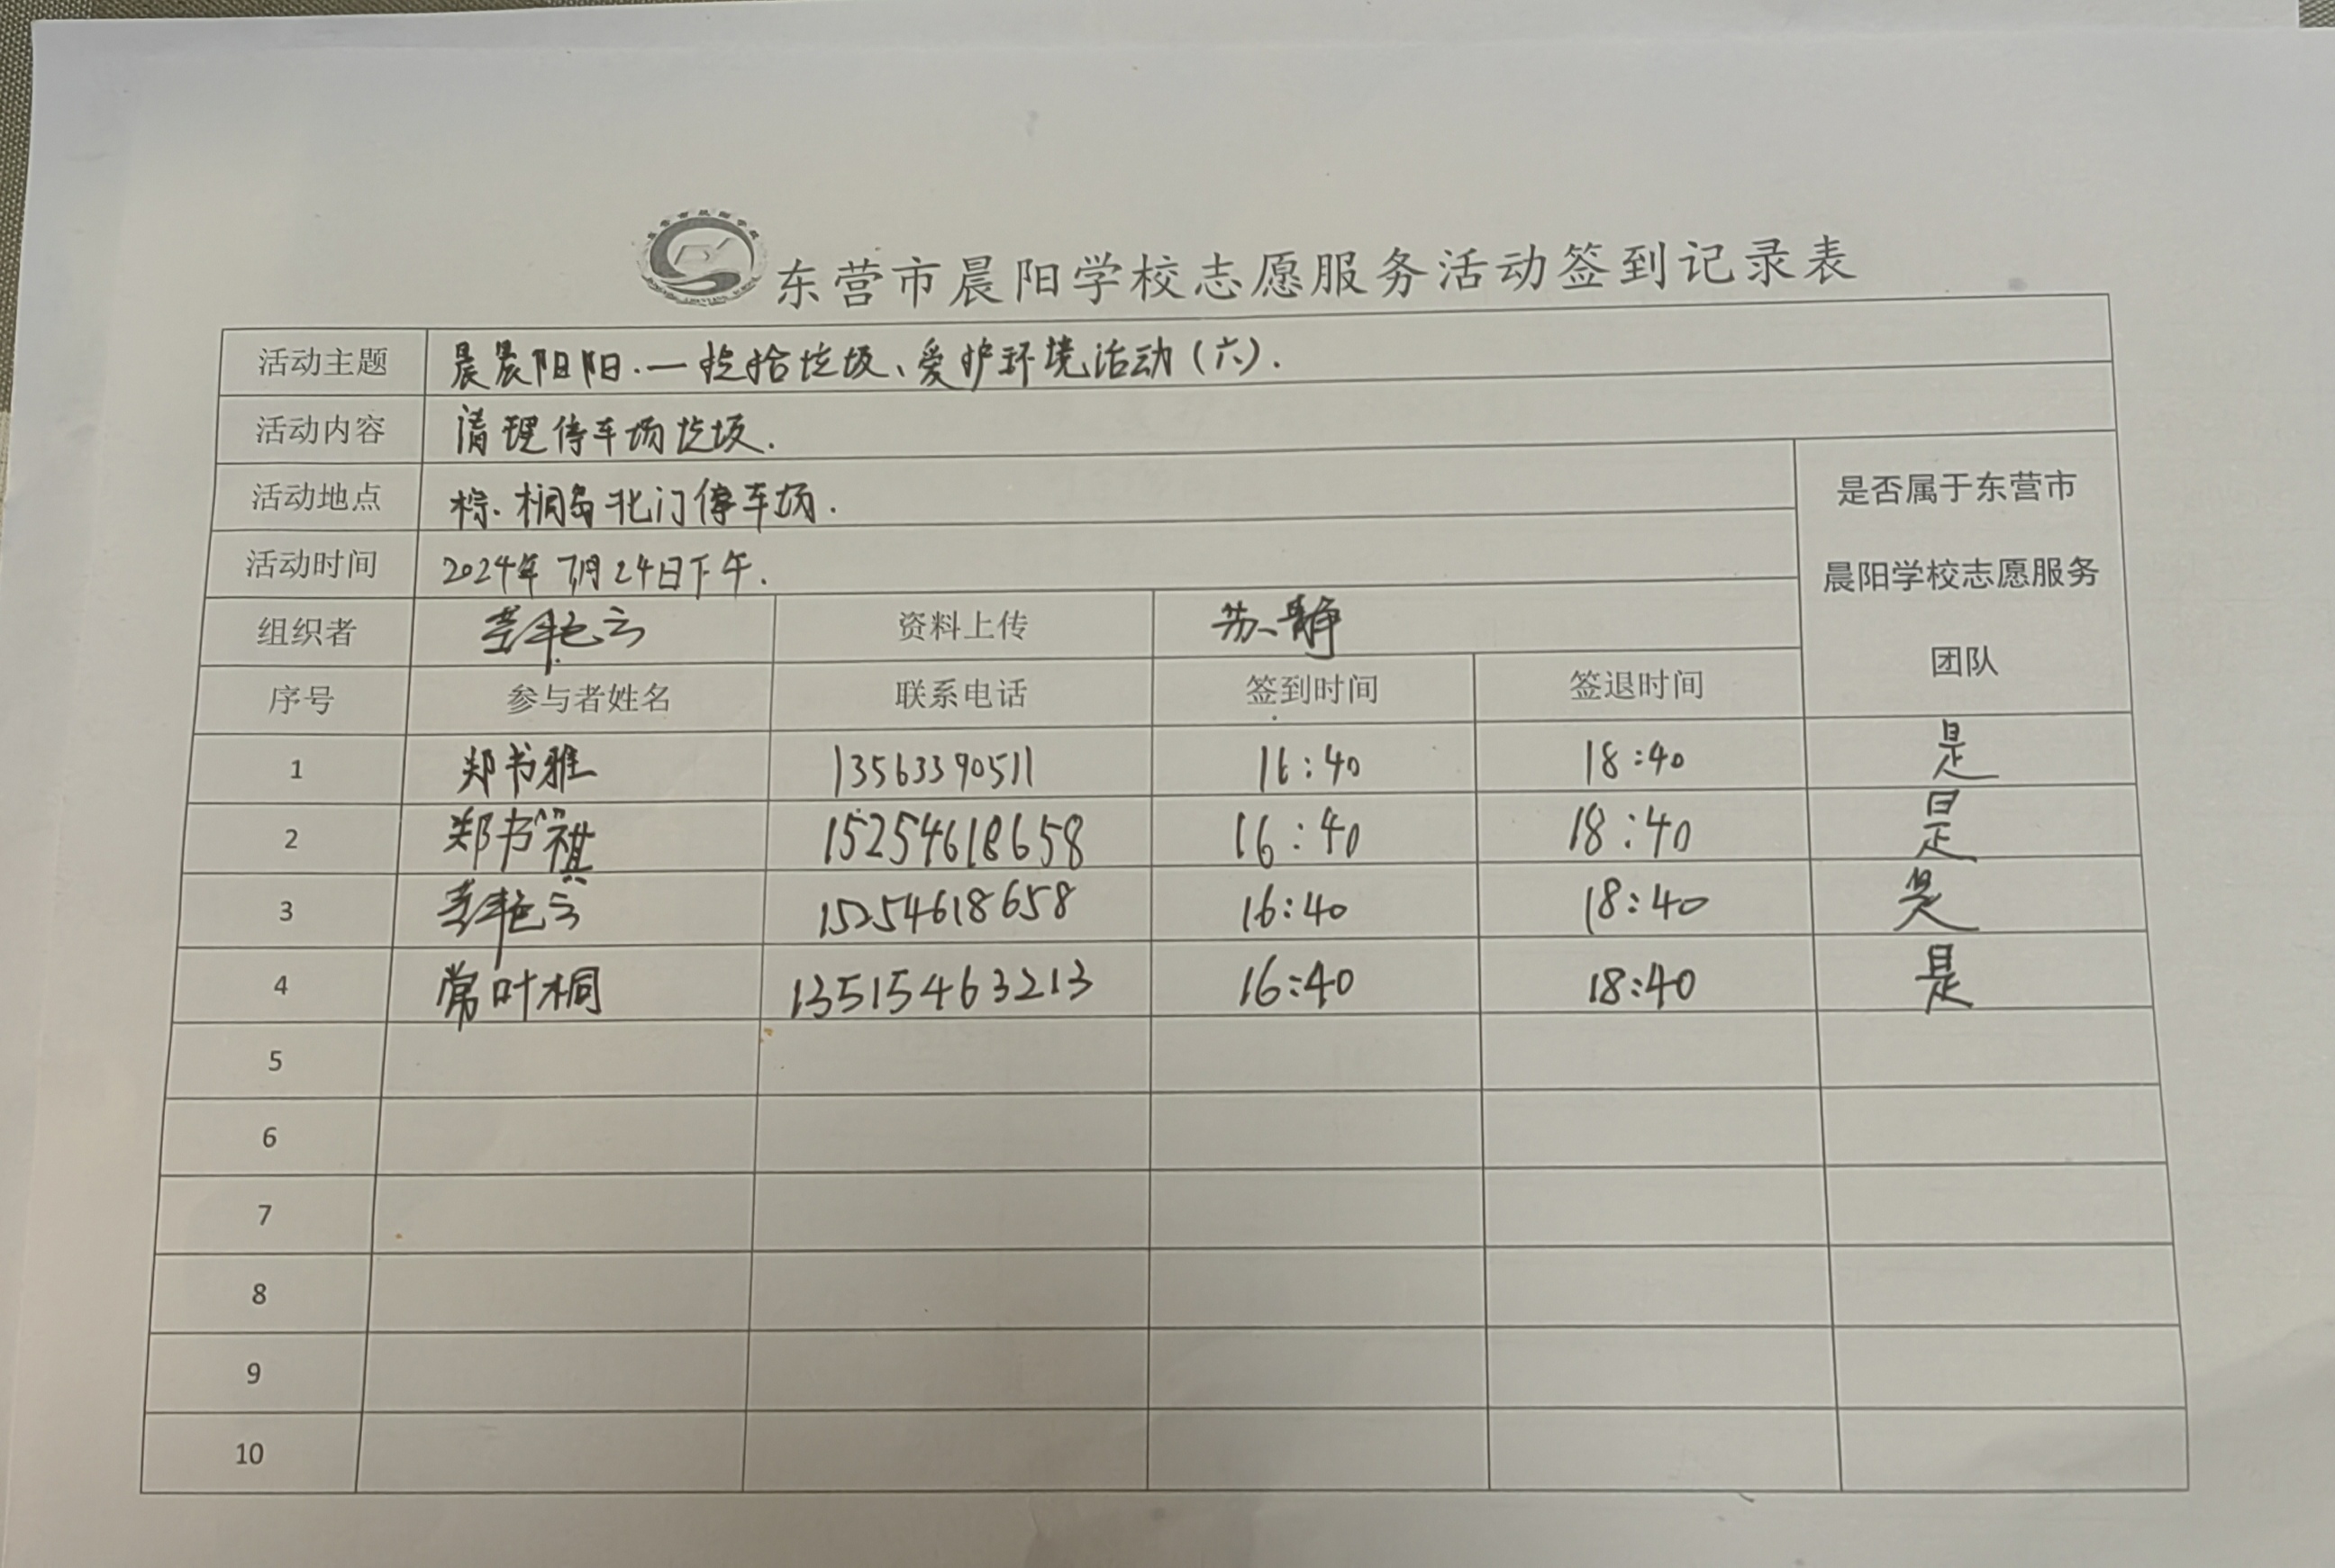 东营市晨阳学校志愿服务活动签到记录表
活动主题 晨晨阳阳.一捡拾垃圾、爱护环境活动(六).
活动内容 清理停车场垃圾.
活动地点 棕.榈岛北门停车场.
是否属于东营市
晨阳学校志愿服务
团队
活动时间 2024年7月24日下午.
组织者 艳云 资料上传 苏静
序号 参与者姓名 联系电话 签到时间 签退时间
1 郑书雅 13563390511 16:40 18:40 是
2 郑书祺 15254618658 16:40 18:40 是
3 艳云 15254618658 16:40 18:40 是
4 常叶桐 13515463213 16:40 18:40 是
5
6
7
8
9
10